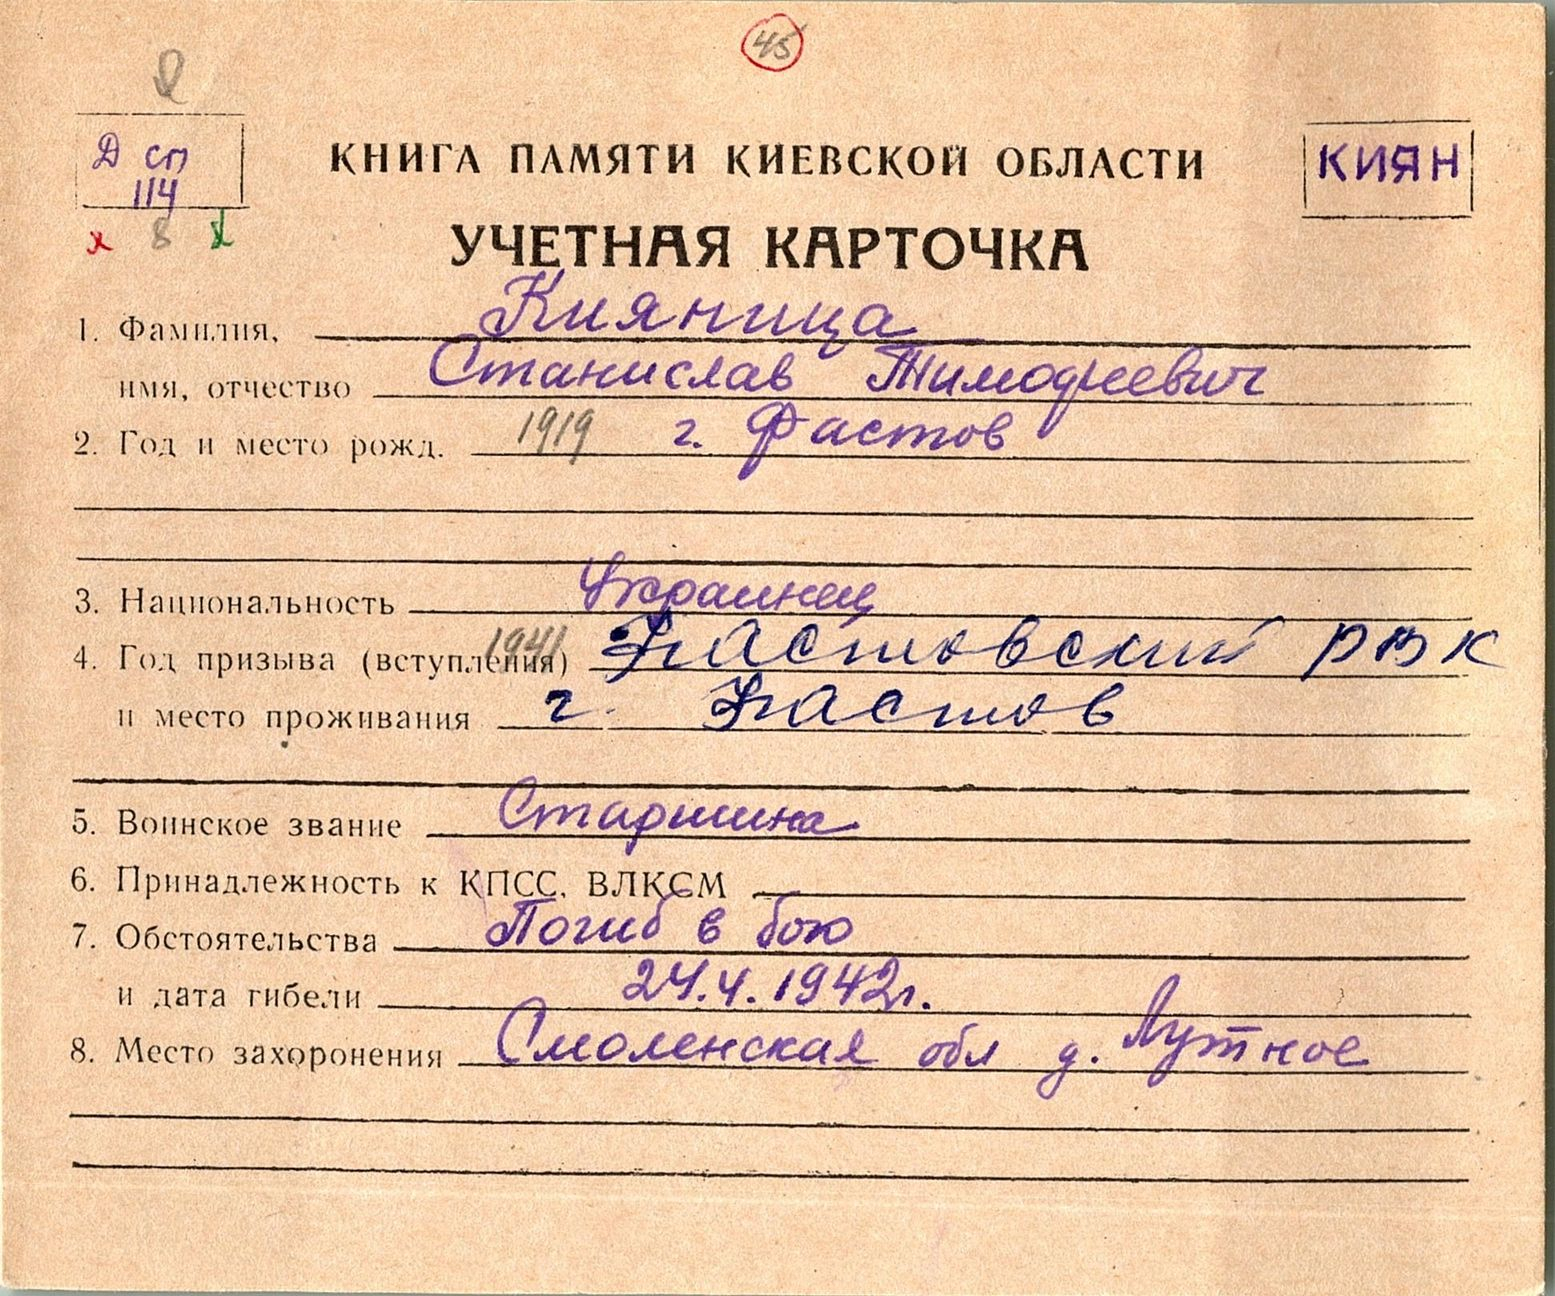 45
Д сп
114
8
КНИГА ПАМЯТИ КИЕВСКОЙ ОБЛАСТИ
КИЯН
УЧЕТНАЯ КАРТОЧКА
1. Фамилия, Кияница
имя, отчество Станислав Тимофеевич
2. Год и место рожд. 1919 г. Фастов
3. Национальность Украинец
4. Год призыва (вступления) 1941 Фастовский РВК
и место проживания г. Фастов
5. Воинское звание Старшина
6. Принадлежность к КПСС, ВЛКСМ
7. Обстоятельства Погиб в бою
и дата гибели 24.4.1942г.
8. Место захоронения Смоленская обл д. Лутное